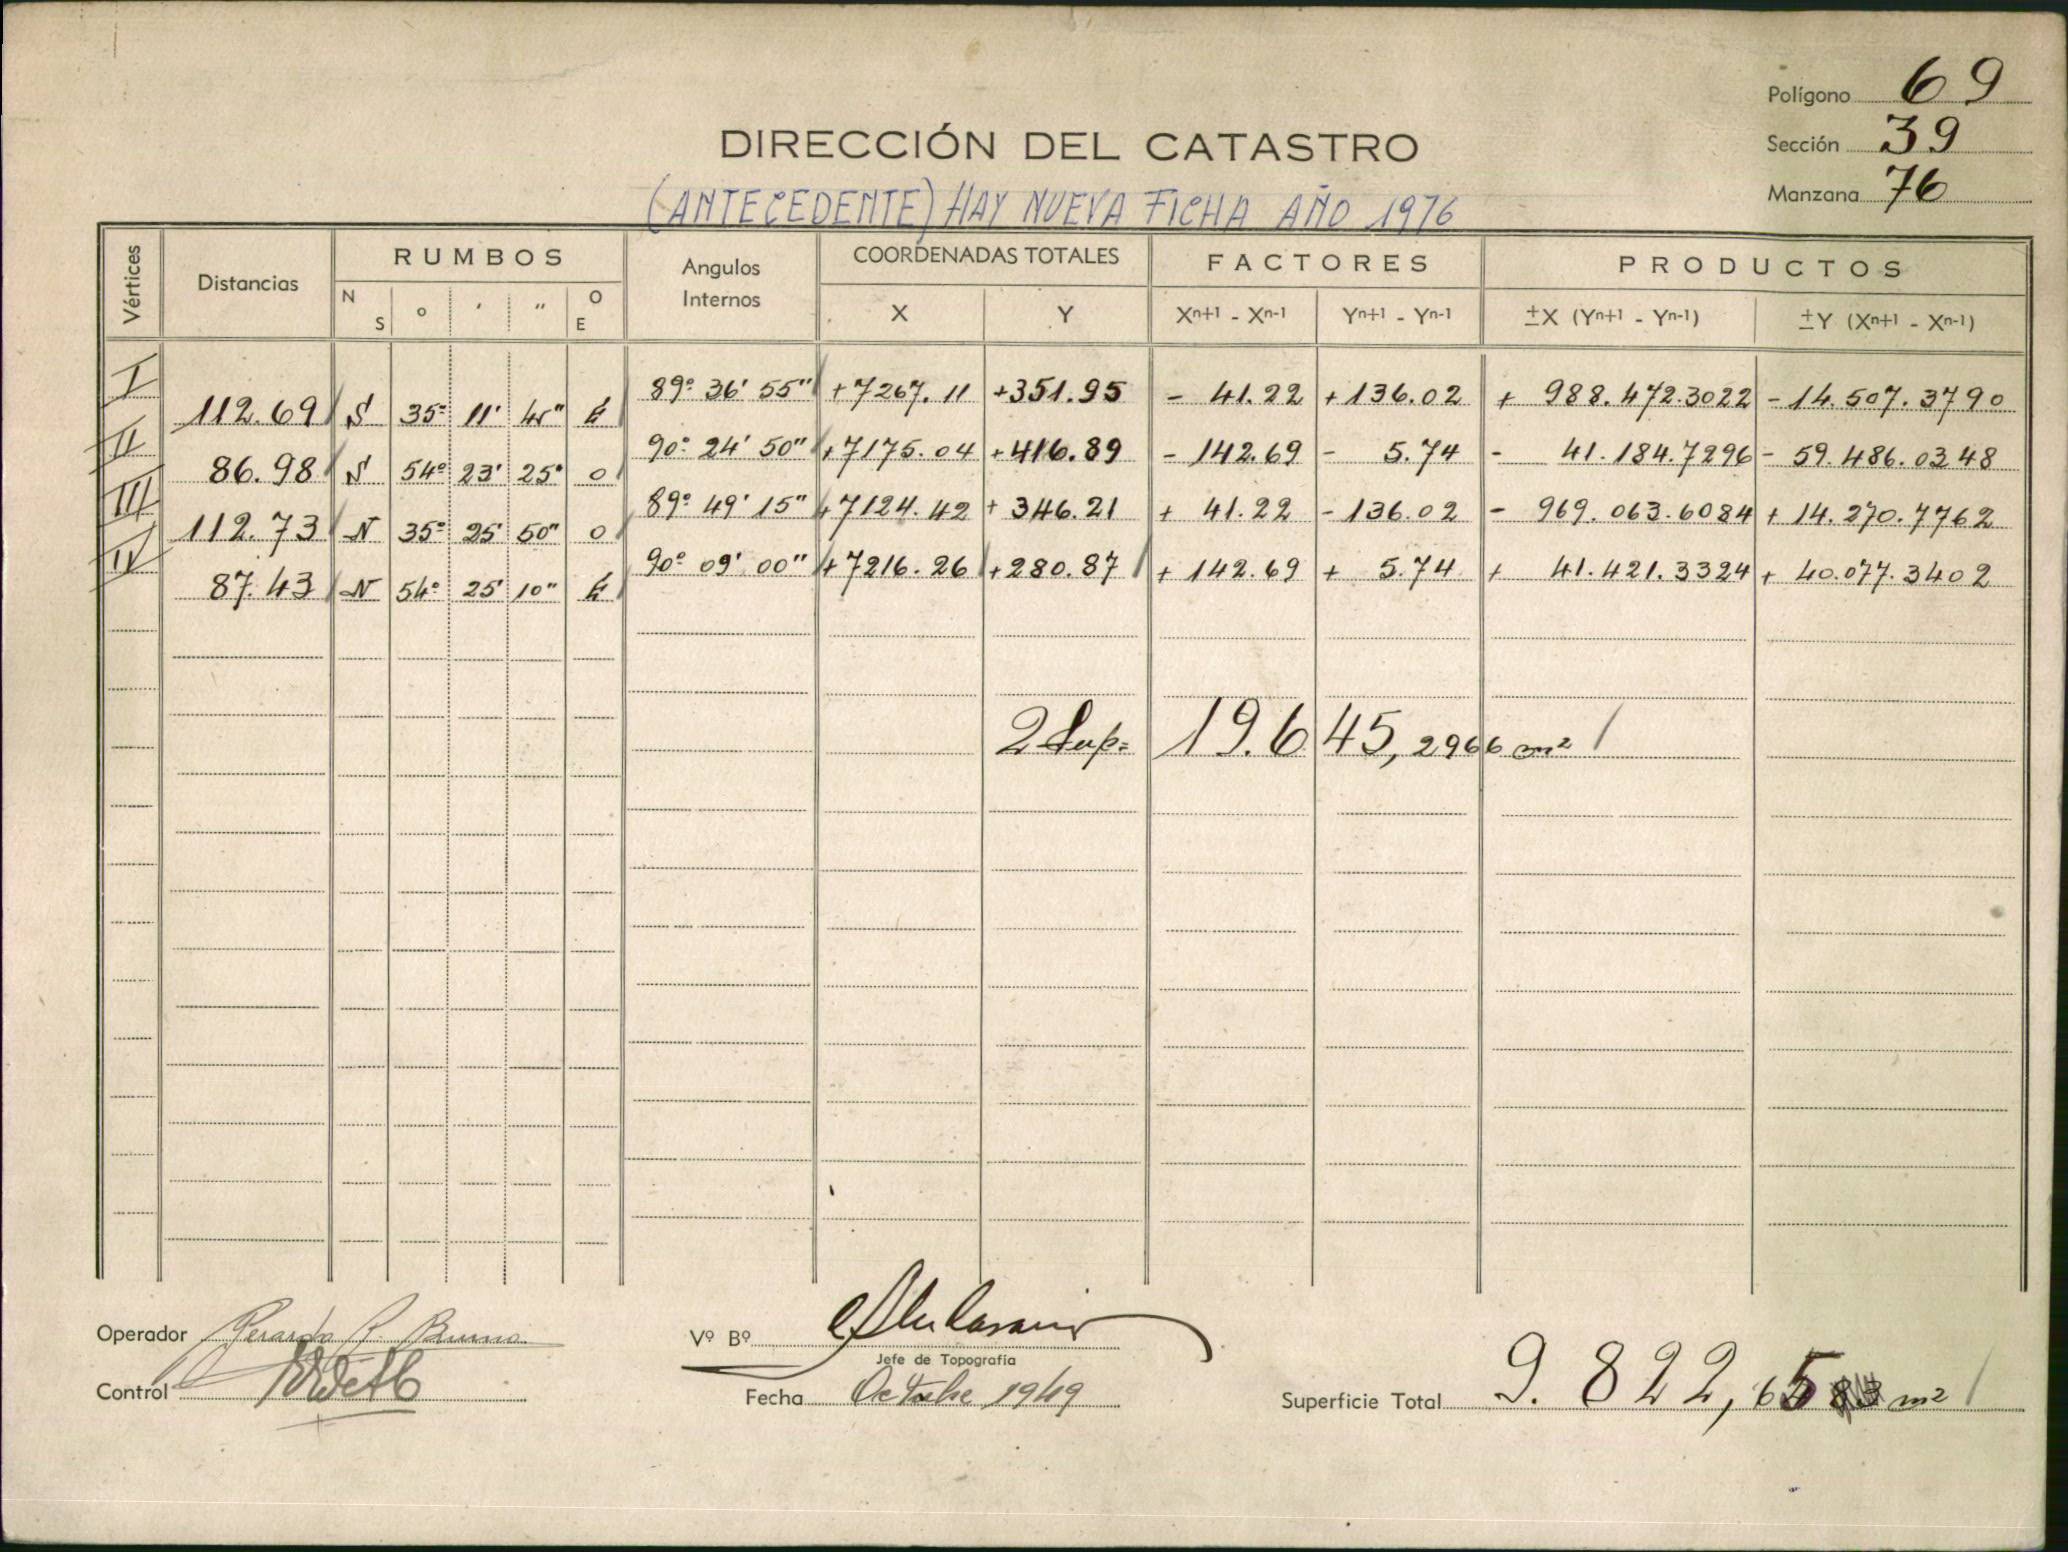 Polígono 69
DIRECCIÓN DEL CATASTRO
Sección 39
Manzana 76
(ANTECEDENTE) HAY NUEVA FICHA AÑO 1976
Vértices Distancias RUMBOS Angulos Internos COORDENADAS TOTALES FACTORES PRODUCTOS
N S o ' " O E X Y Xn+1 - Xn-1 Yn+1 - Yn-1 ±X (Yn+1 - Yn-1) ±Y (Xn+1 - Xn-1)
I 89º 36' 55" +7267.11 +351.95 - 41.22 +136.02 + 988.472.3022 -14.507.3790
112.69 S 35º 11' 45" E
II 90º 24' 50" +7175.04 +416.89 - 142.69 - 5.74 - 41.184.7296 - 59.486.0348
86.98 S 54º 23' 25" O
III 89º 49' 15" +7124.42 + 346.21 + 41.22 - 136.02 - 969.063.6084 + 14.270.7762
112.73 N 35º 25' 50" O
IV 90º 09' 00" +7216.26 +280.87 + 142.69 + 5.74 + 41.421.3324 + 40.077.3402
87.43 N 54º 25' 10" E
2 Sup= 19.645,2966 m²
Operador Gerardo R. Bruno
Vº Bº
Jefe de Topografía
Control
Fecha Octubre 1949
Superficie Total 9.822,65 m²